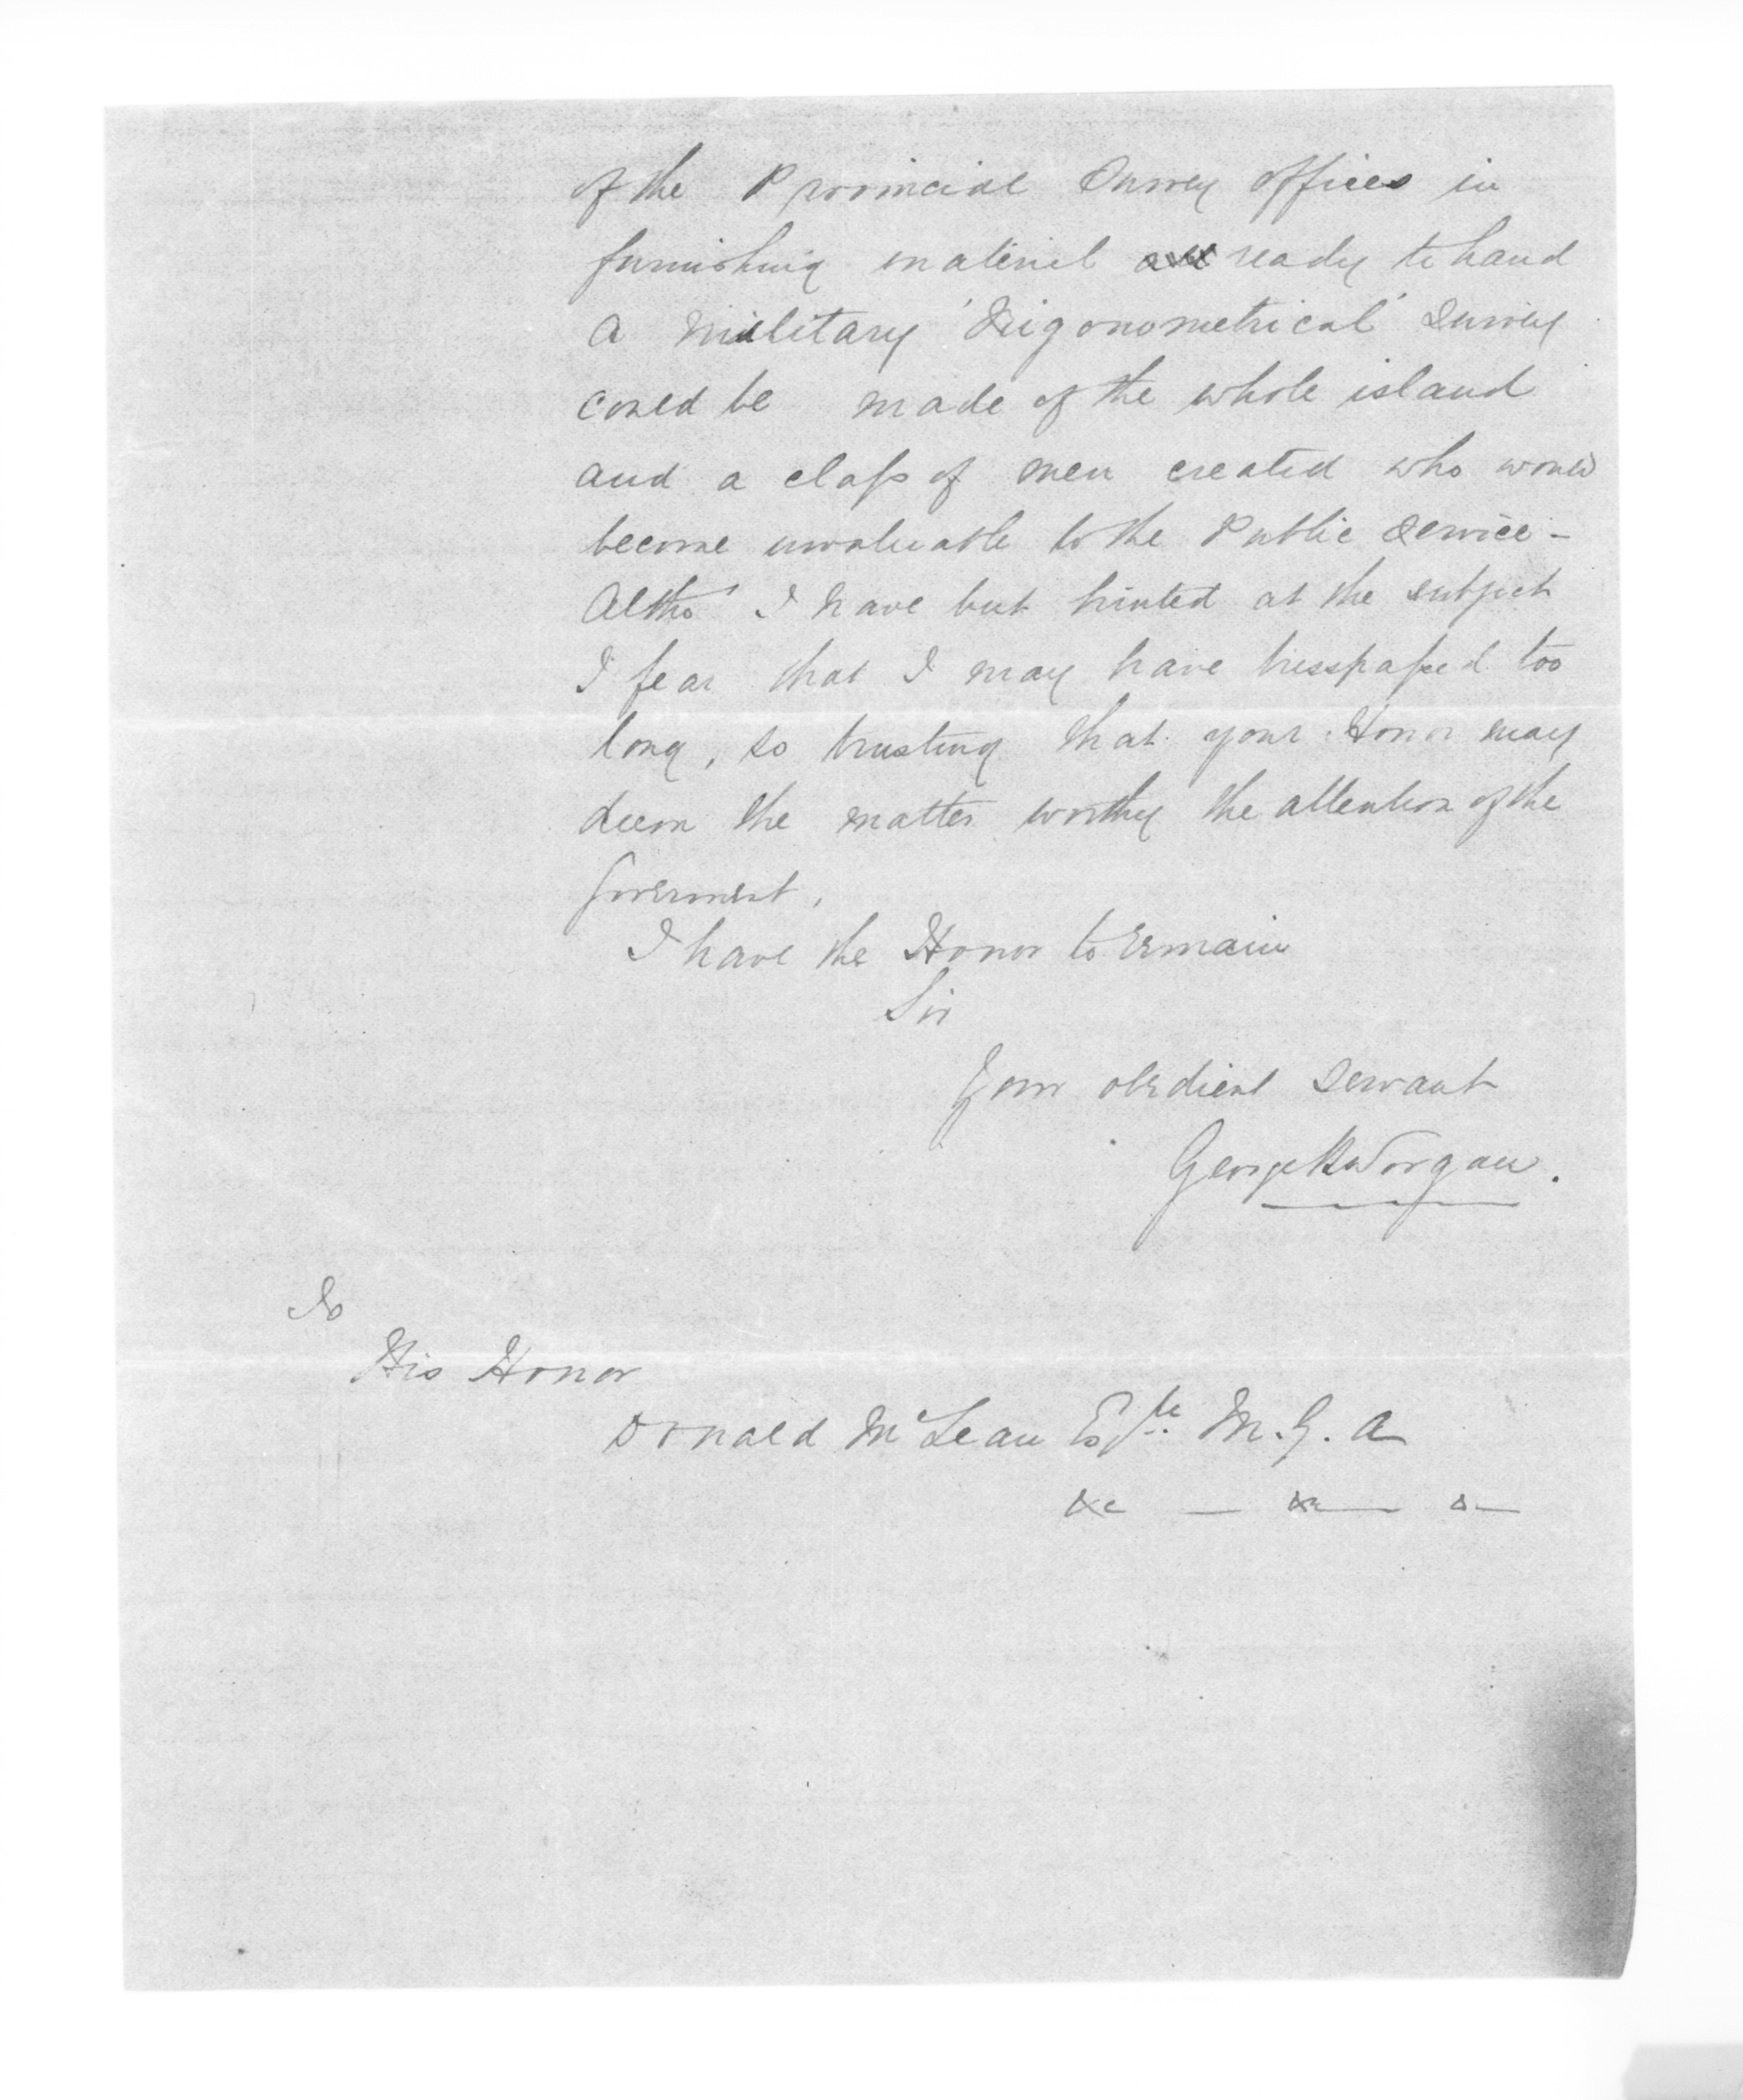 of the Provincial Survey offices in
furnishing material ready to hand
a military 'Trigonometrical' Survey
could be made of the whole island
and a class of men created who would
become invaluable to the Public Service -
Altho' I have but hinted at the subject
I fear that I may have tresspassed too
long, so trusting that your Honor may
deem the matter worthy the attention of the
Goverment,
I have the Honor to remain
Sir
Your obedient Servant
George Worgan.
To
His Honor
Donald McLean Esqre M.G.A
&c — &c — &—